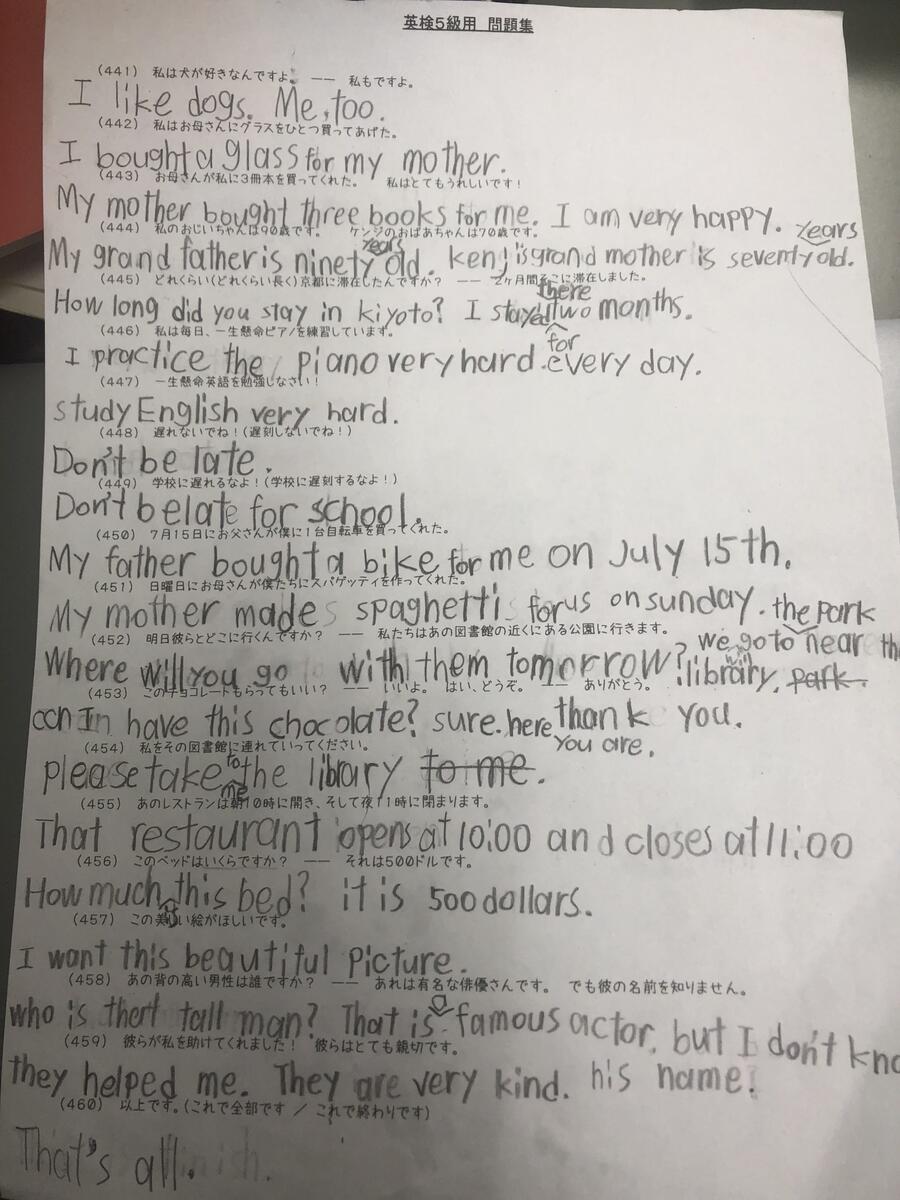 英検5級用 問題集
(441) 私は犬が好きなんですよ。 —— 私もですよ。
I like dogs. Me, too.
(442) 私はお母さんにグラスをひとつ買ってあげた。
I bought a glass for my mother.
(443) お母さんが私に3冊本を買ってくれた。 私はとてもうれしいです!
My mother bought three books for me. I am very happy.
(444) 私のおじいちゃんは90歳です。 ケンジのおばあちゃんは70歳です。
years
years
My grand father is ninety old. kenj isgrand mother is seventy old.
(445) どれくらい(どれくらい長く)京都に滞在したんですか? —— 2ヶ月間そこに滞在しました。
there
How long did you stay in kiyoto? I stayed two months.
for
(446) 私は毎日、一生懸命ピアノを練習しています。
I practice the piano very hard. every day.
(447) 一生懸命英語を勉強しなさい!
study English very hard.
(448) 遅れないでね!(遅刻しないでね!)
Don't be late.
(449) 学校に遅れるなよ!(学校に遅刻するなよ!)
Don't be late for school.
(450) 7月15日にお父さんが僕に1台自転車を買ってくれた。
My father bought a bike for me on July 15th.
(451) 日曜日にお母さんが僕たちにスパゲッティを作ってくれた。
My mother made spaghetti for us on sunday.
(452) 明日彼らとどこに行くんですか? —— 私たちはあの図書館の近くにある公園に行きます。
the park
we go to near the
will
Where will you go with them tomorrow? library. park.
(453) このチョコレートもらってもいい? —— いいよ。 はい、どうぞ。 —— ありがとう。
can I have this chocolate? sure. here thank you.
you are.
(454) 私をその図書館に連れていってください。
to
please take the library to me.
me
(455) あのレストランは朝10時に開き、そして夜11時に閉まります。
That restaurant opens at 10:00 and closes at 11:00
(456) このベッドはいくらですか? —— それは500ドルです。
How much this bed? it is 500 dollars.
(457) この美しい絵がほしいです。
I want this beautiful picture.
(458) あの背の高い男性は誰ですか? —— あれは有名な俳優さんです。 でも彼の名前を知りません。
who is that tall man? That is a famous actor. but I don't kno
(459) 彼らが私を助けてくれました! 彼らはとても親切です。
they helped me. They are very kind. his name.
(460) 以上です。(これで全部です / これで終わりです)
That's all.